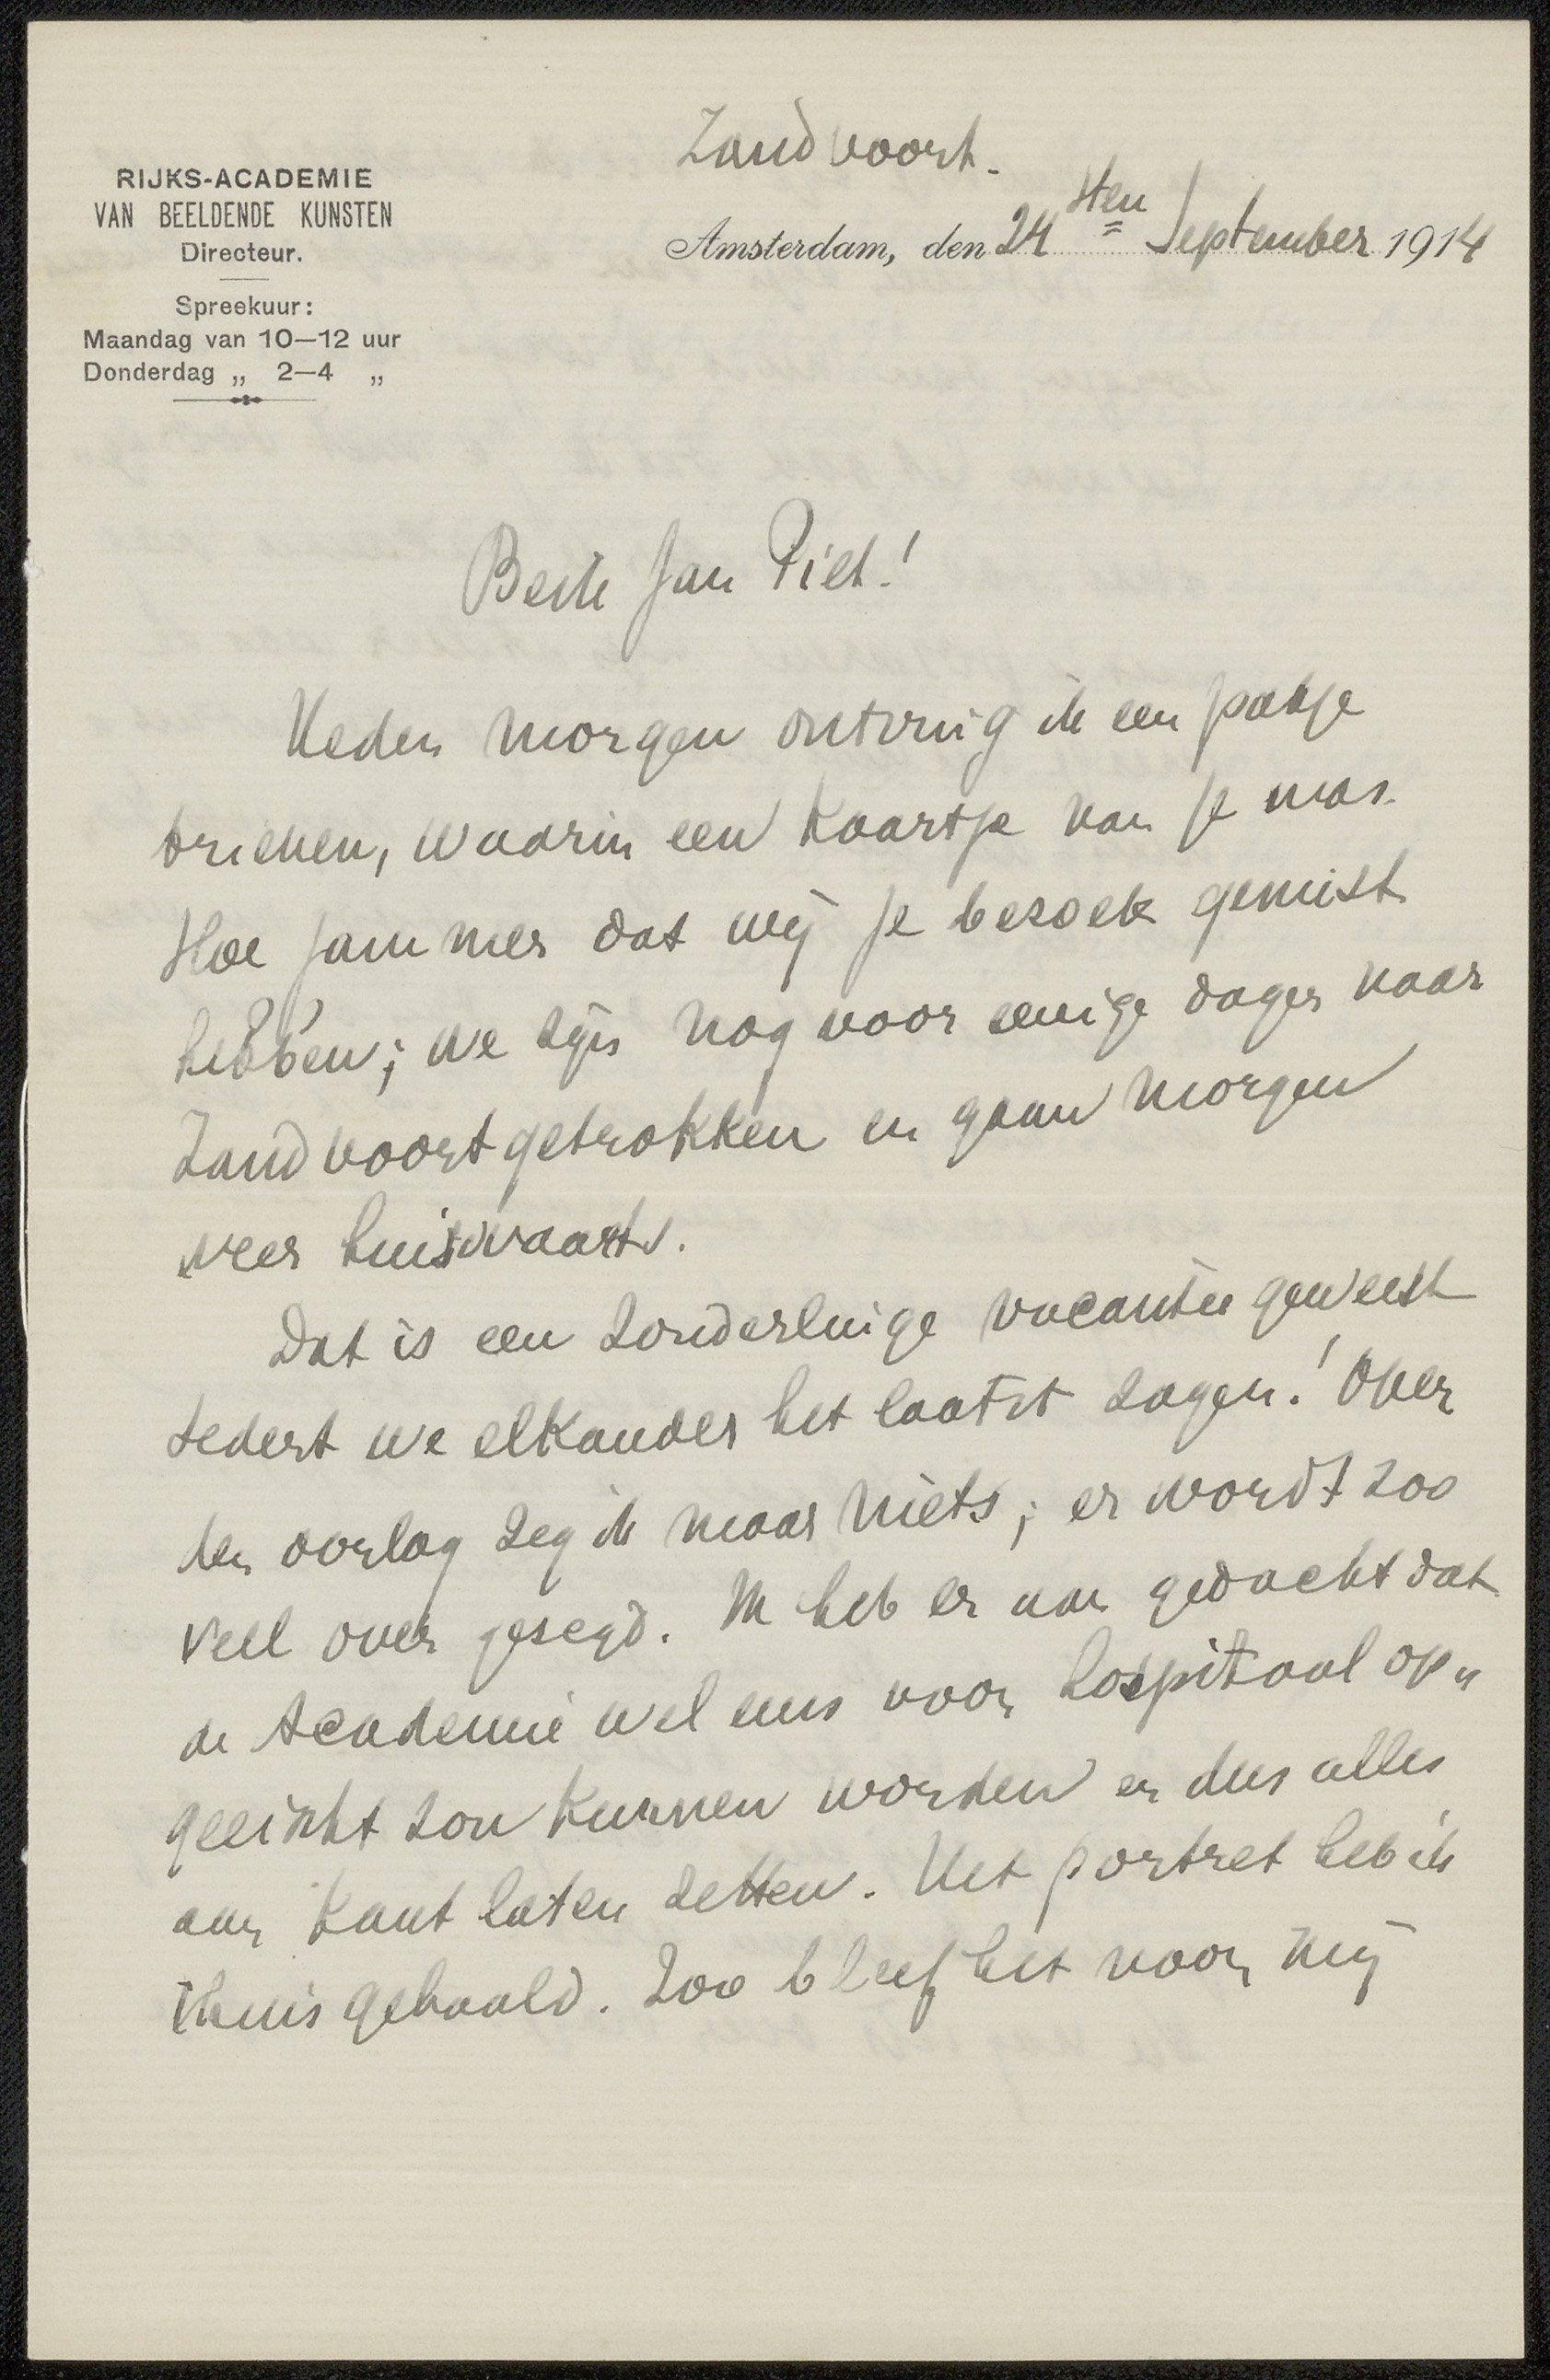 Zandvoort.
RIJKS-ACADEMIE
VAN BEELDENDE KUNSTEN
Directeur.
Spreekuur:
Maandag van 10—12 uur
Donderdag „ 2—4 „
Amsterdam, den 24sten September 1914
Beste Jan Piet!
Heden morgen ontving ik een pakje
brieven, waarin een kaartje van je was.
Hoe jammer dat wij je bezoek gemist
hebben; we zijn nog voor eenige dagen naar
Zandvoort getrokken en gaan morgen
weer huiswaarts.
Dat is een zonderlinge vacantie geweest
sedert we elkander het laatst zagen! Over
den oorlog zeg ik maar niets; er wordt zoo
veel over gezegd. Ik heb er aan gedacht dat
de Academie wel eens voor hospitaal op„
geeischt zou kunnen worden en dus alles
aan kant laten zetten. Het portret heb ik
thuis gehaald. Zoo bleef het voor mij